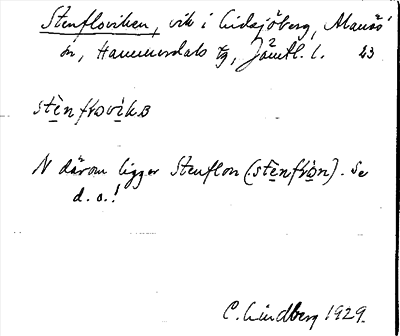 Stenfloviken, vik i Lidsjöberg,
ön, Hammerdals tg, Jämtl. l. 23
stènflovìkɜ
N därom ligger Stenflon (stènflòn). Se
d. o.!
C. Lindberg 1929.